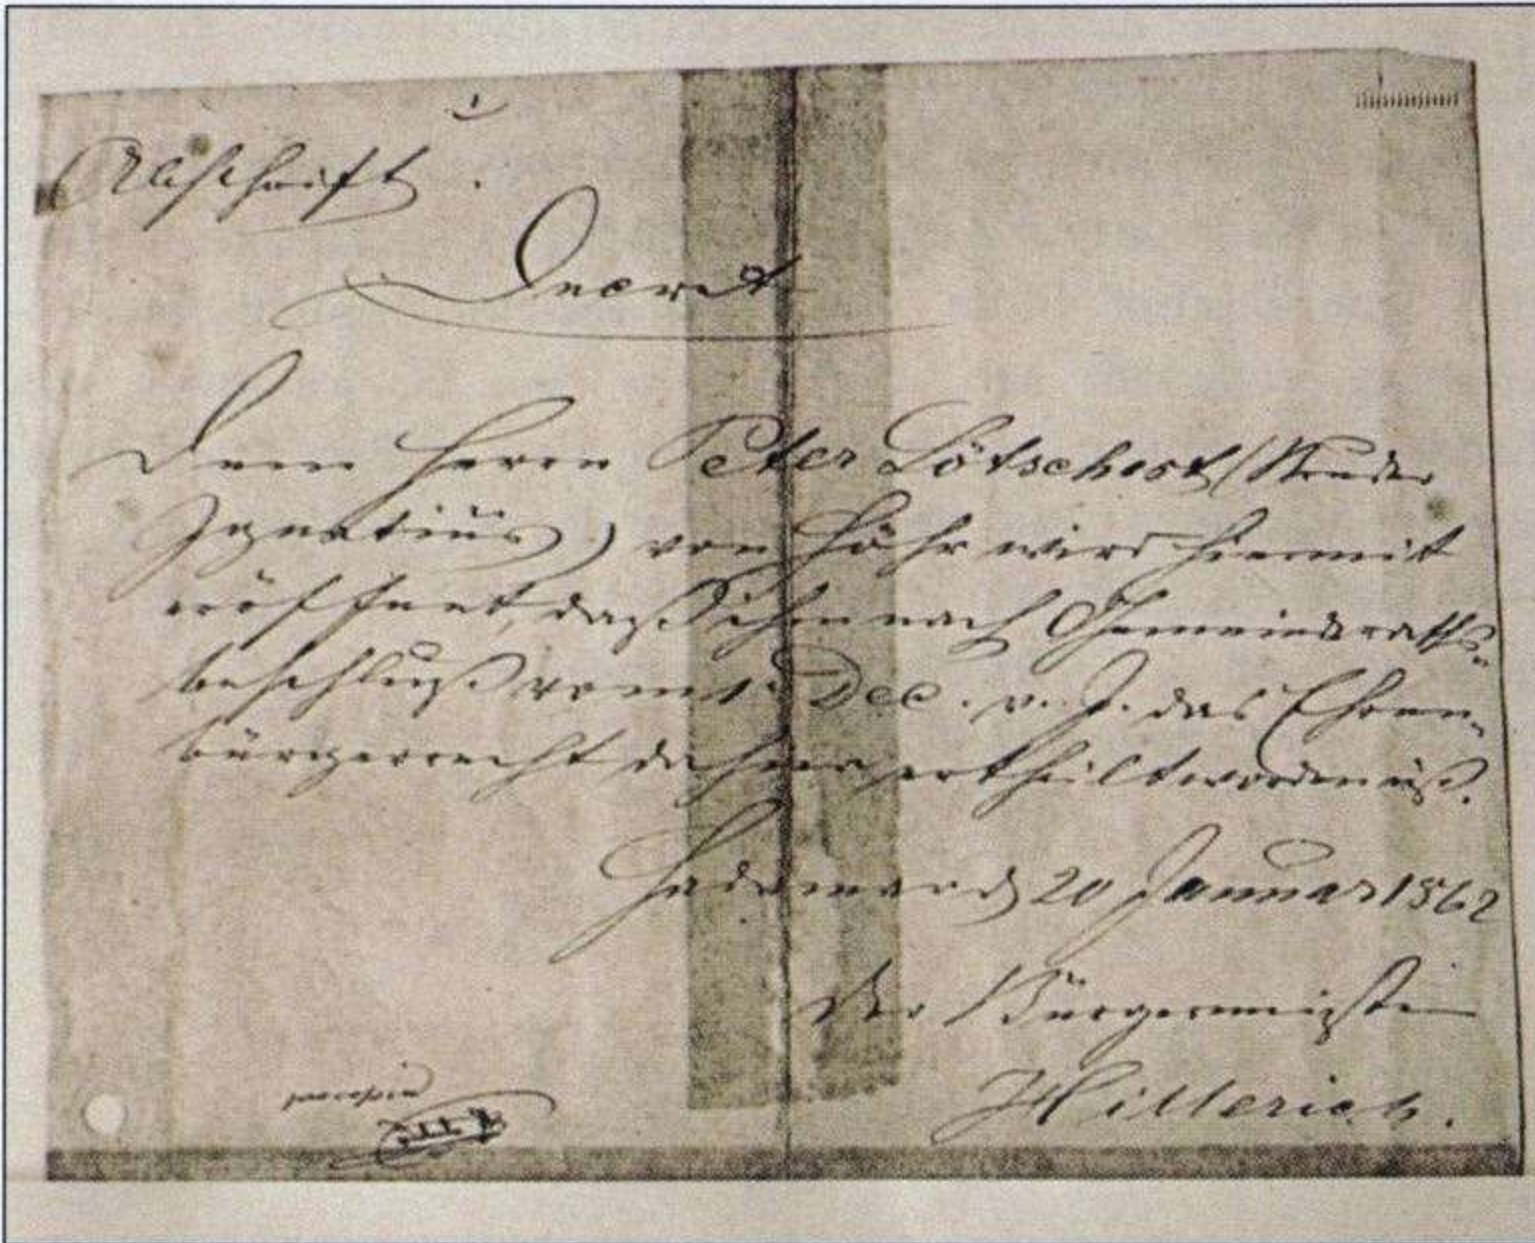 Abschrift.
Decret
Dem Herrn Peter Lötschert (Bruder
Ignatius) von Höhr wird hiermit
eröffnet, daß ihm nach Gemeinderaths-
beschluß vom 1. Dec. v. J. das Ehren-
bürgerrecht dahier ertheilt worden ist.
Hadamar d 20 Januar 1862
Der Bürgermeister
Hillerich.
pro copia